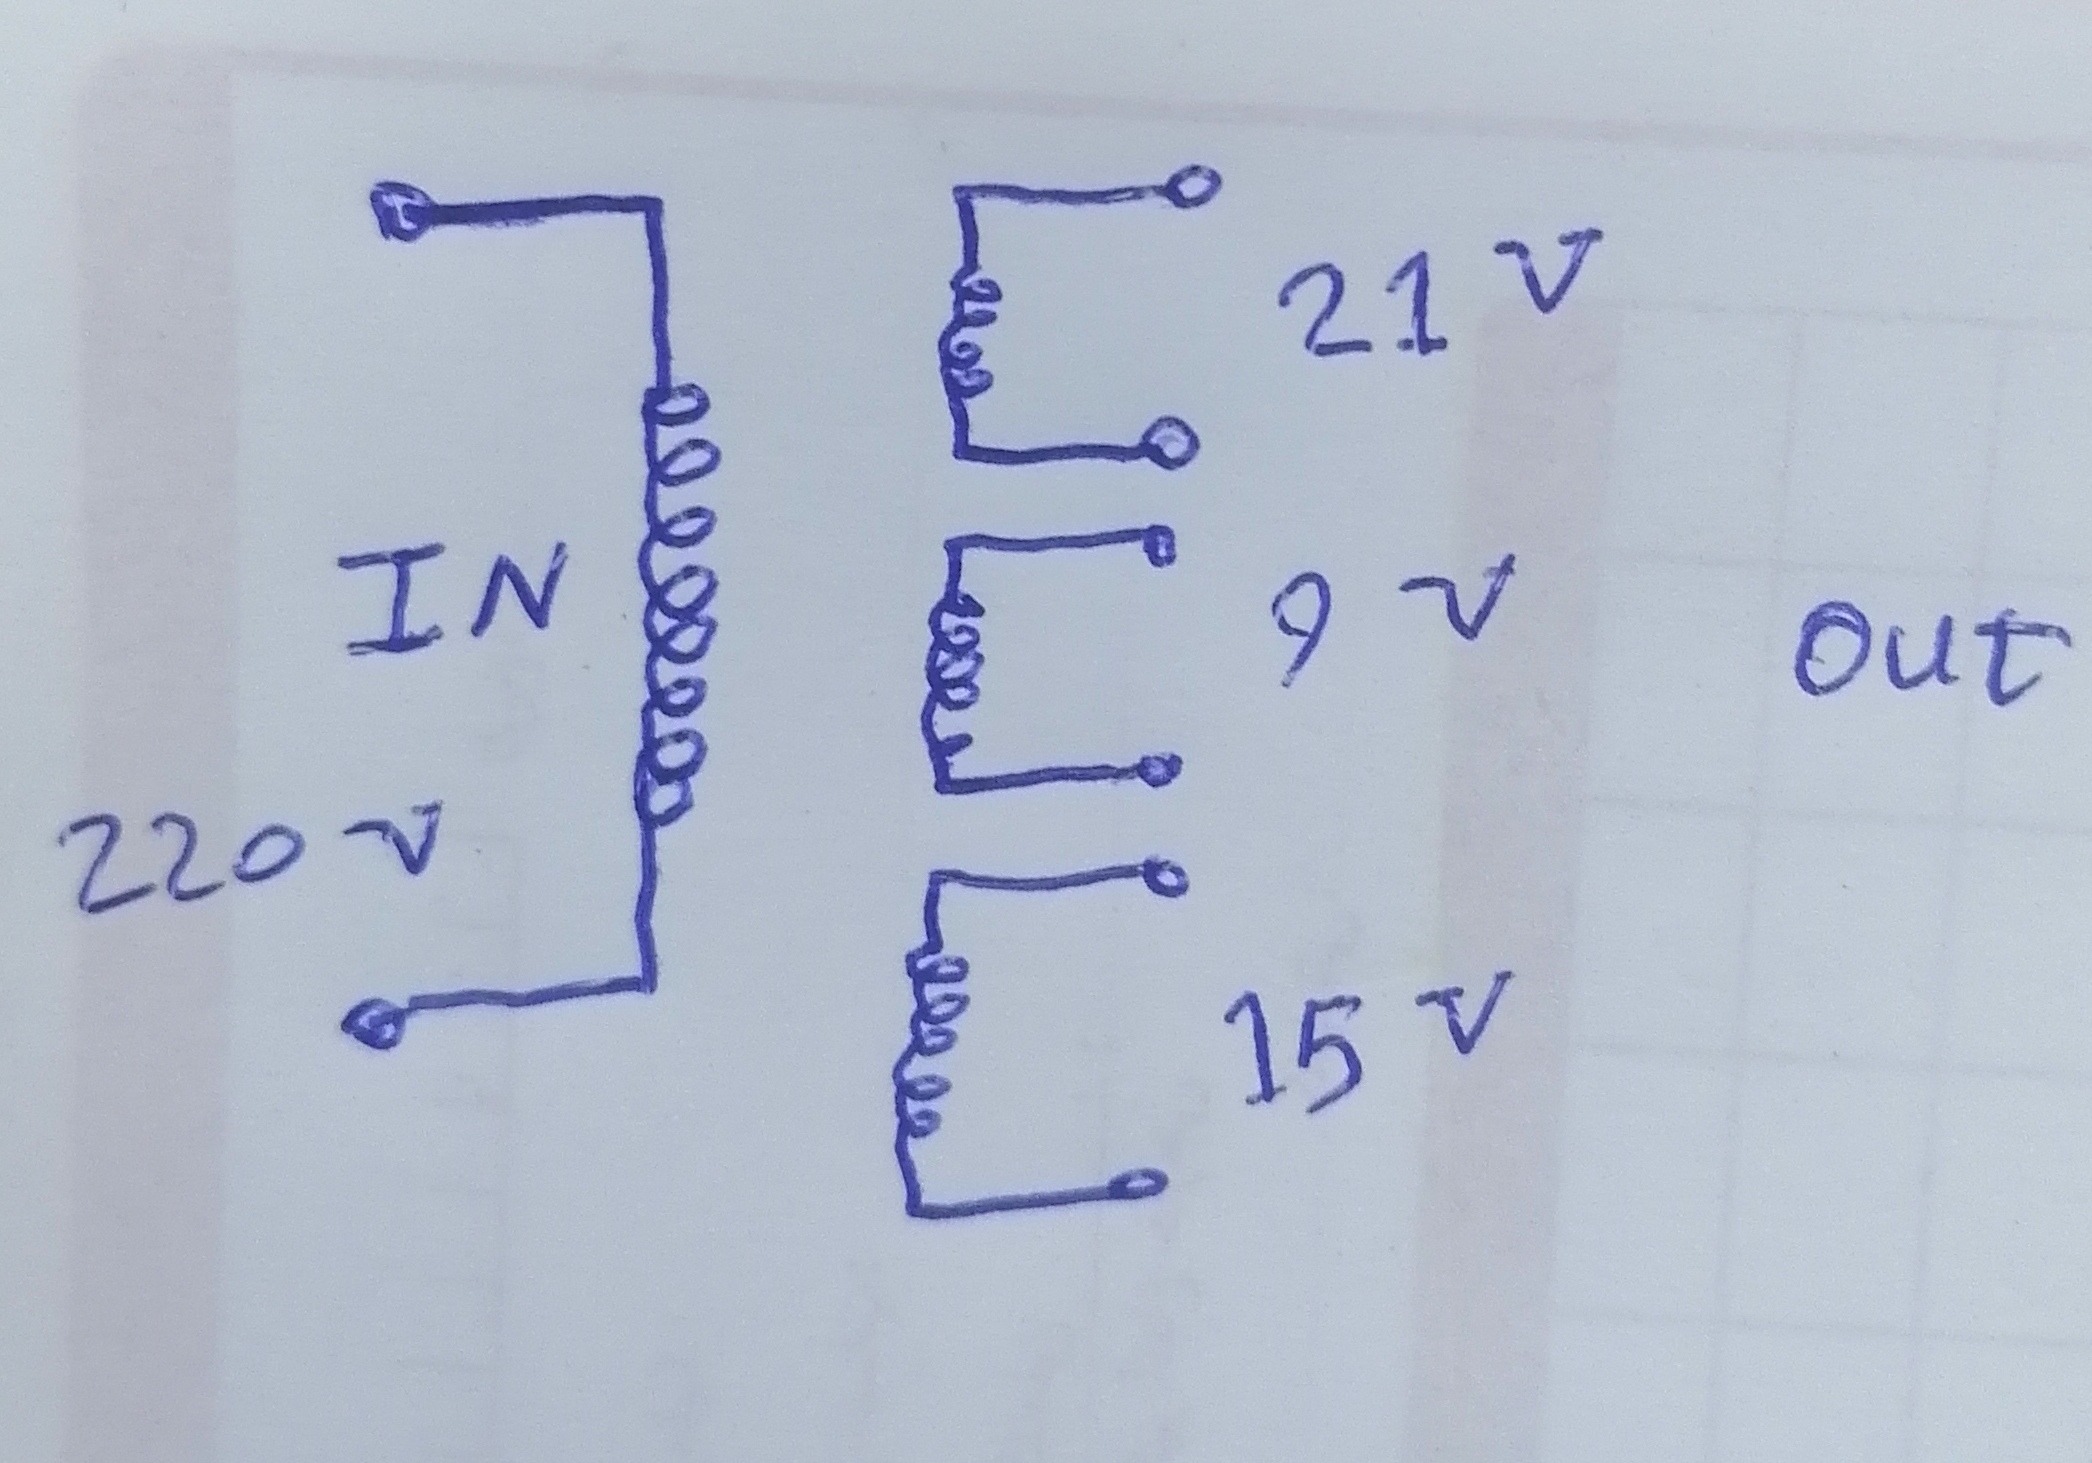 21 V
IN
9 V
OUt
220 V
15 V